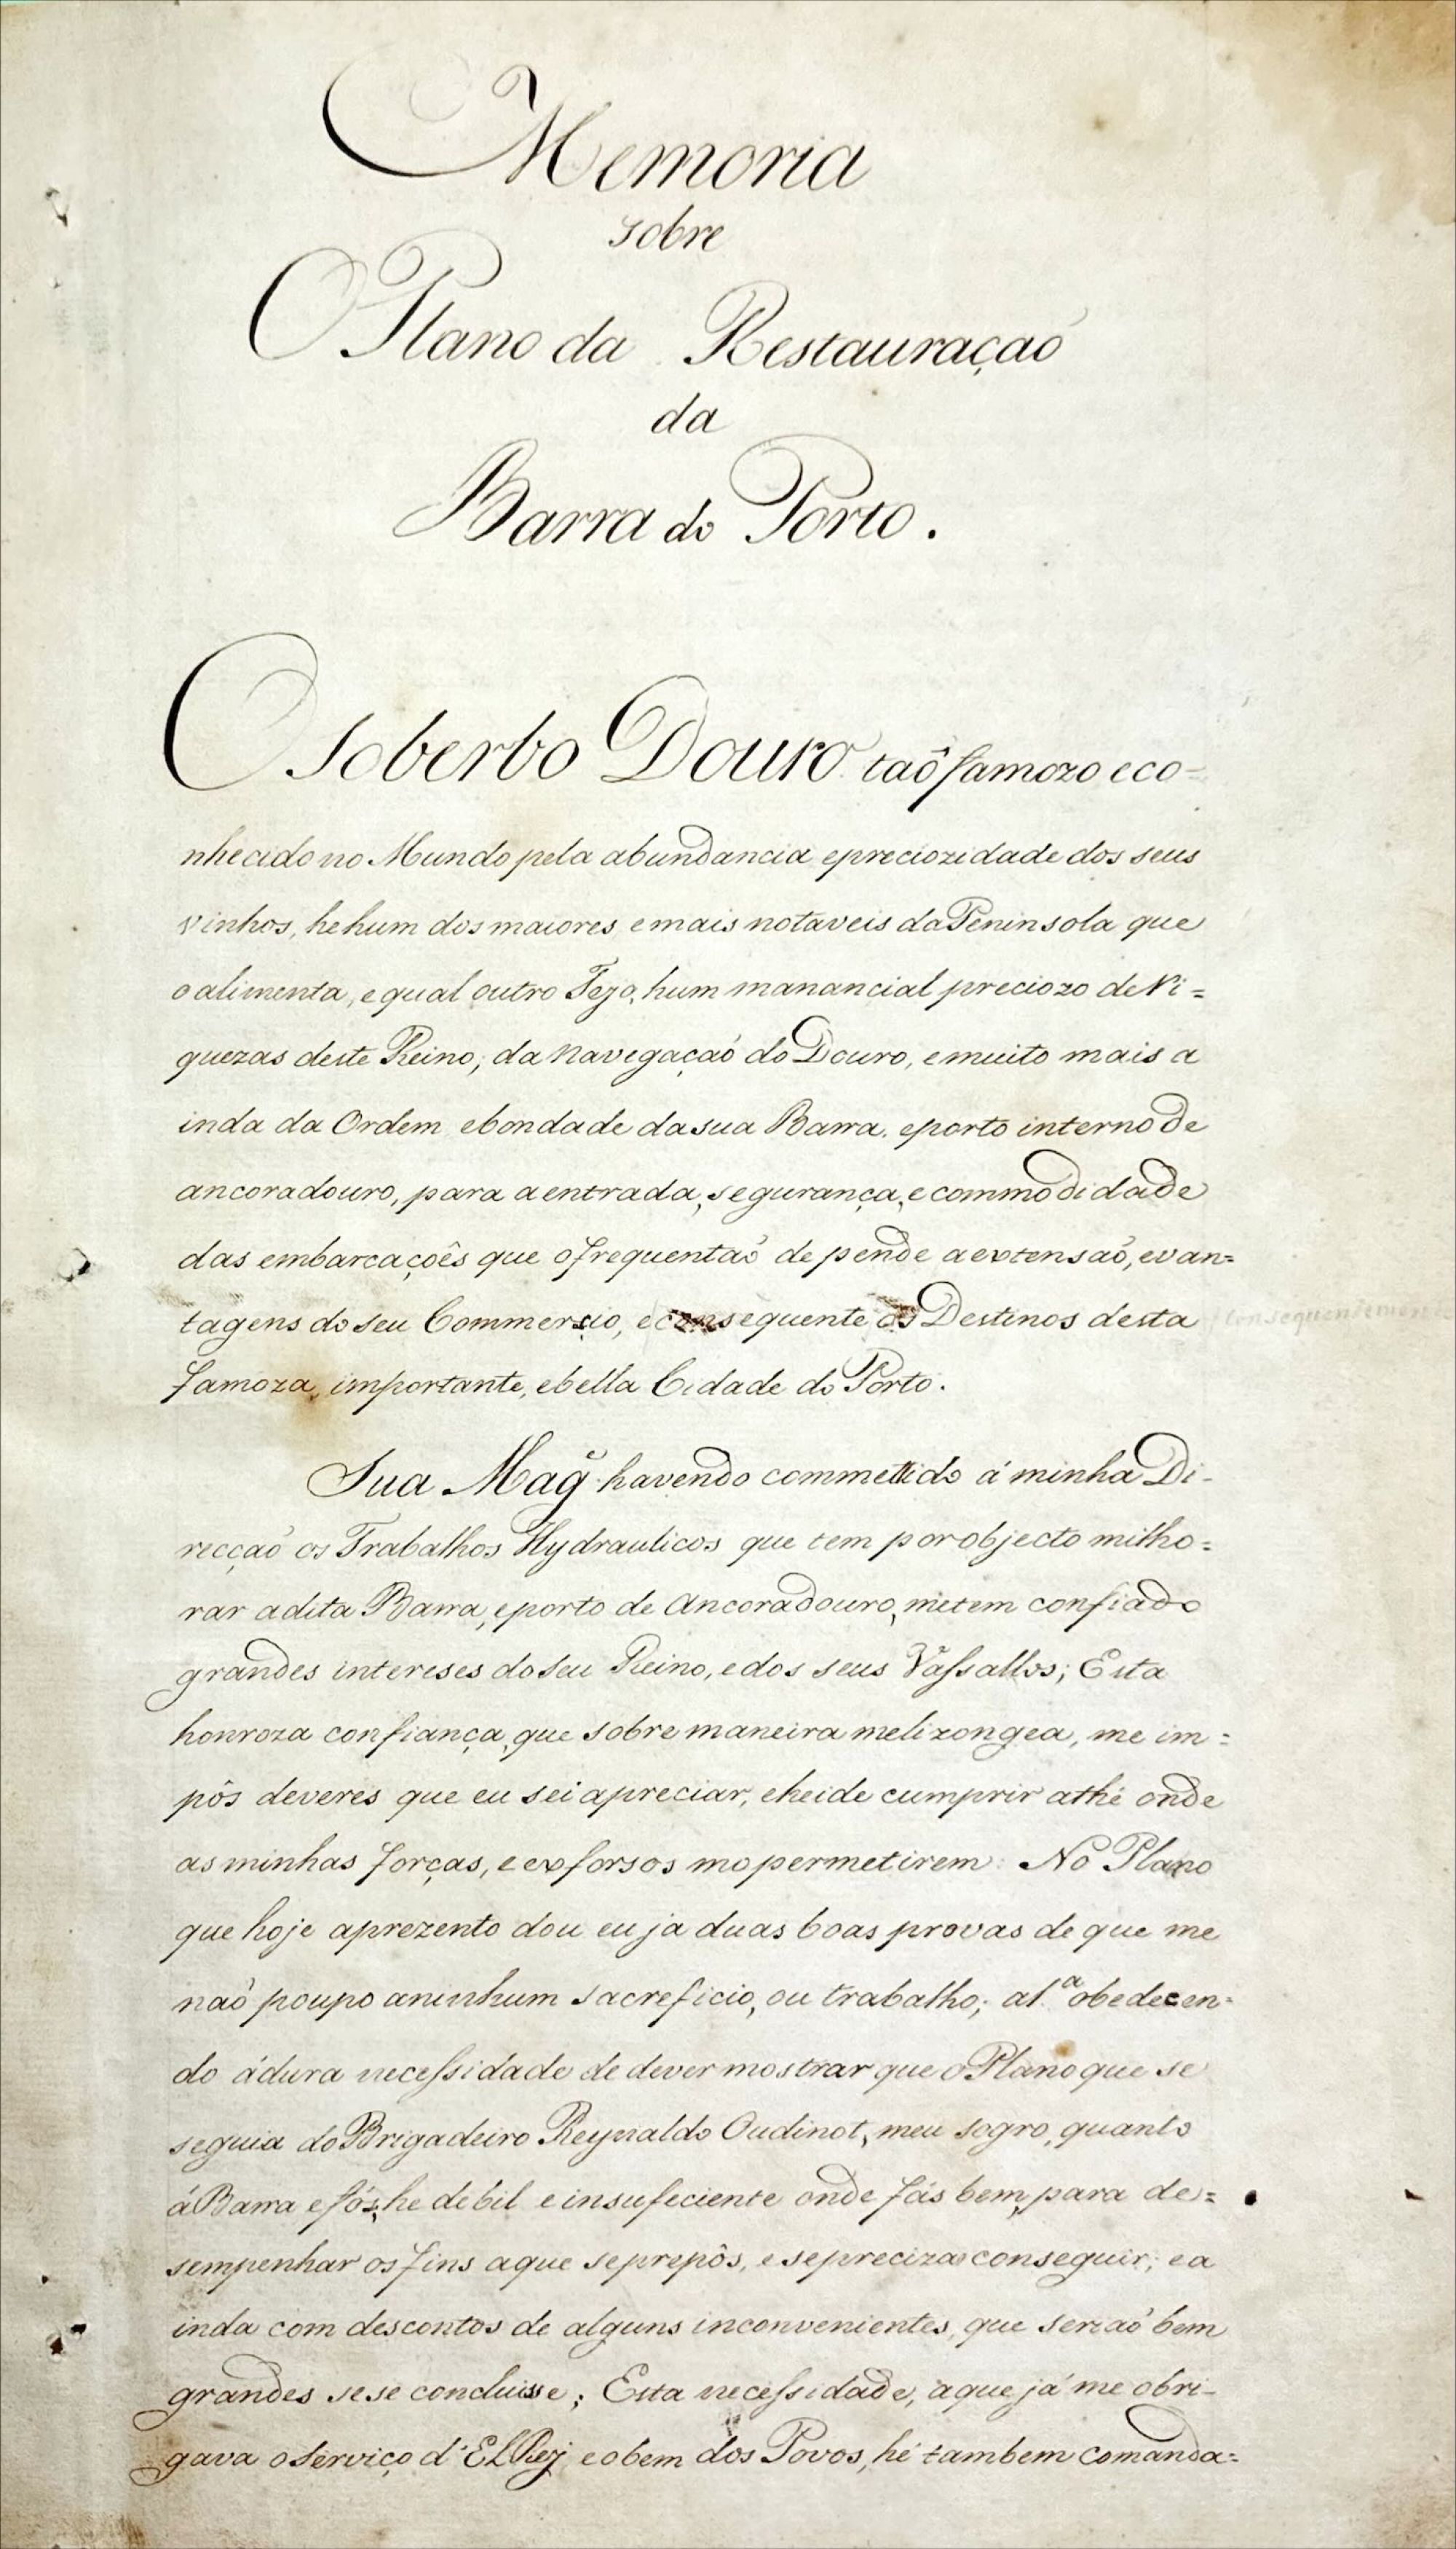 Memoria
sobre
O Plano da Restauraçaõ
da
Barra do Porto.
O Soberbo Douro taõ famozo e co=
nhecido no Mundo pela abundancia e preciozidade dos seus
vinhos, he hum dos maiores e mais notaveis da Peninsola que
o alimenta, e qual outro Tejo, hum manancial preciozo de Ri=
quezas deste Reino; da Navegaçaõ do Douro, e muito mais a
inda da Ordem e bondade da sua Barra e porto interno de
ancoradouro, para a entrada, segurança, e commodidade
das embarcaçoês que o frequentaõ depende a extensaõ, e van=
tagens do seu Commercio, e consequente os Destinos desta
famoza, importante, e bella Cidade do Porto.
consequentemente
Sua Mag.e havendo commettido á minha Di-
recçaõ os Trabalhos Hydraulicos que tem por objecto milho=
rar a dita Barra, e porto de Ancoradouro, me tem confiado
grandes intereses do seu Reino, e dos seus Vassallos; Esta
honroza confiança, que sobre maneira me lizongea, me im=
pôs deveres que eu sei apreciar, e heide cumprir athé onde
as minhas forças, e exforsos mo permetirem. No Plano
que hoje aprezento dou eu ja duas boas provas de que me
naõ poupo a ninhum sacreficio, ou trabalho; a 1.ª obedecen=
do á dura necessidade de dever mostrar que o Plano que se
seguia do Brigadeiro Reynaldo Oudinot, meu sogro, quanto
á Barra e fós, he debil e insufeciente onde fás bem, para de=
sempenhar os fins a que se prepôs, e se preciza conseguir; e a
inda com descontos de alguns inconvenientes, que seriaõ bem
grandes se se concluisse; Esta necessidade, a que já me obri-
gava o Serviço d'ElRey e o bem dos Povos, hé tambem comanda=